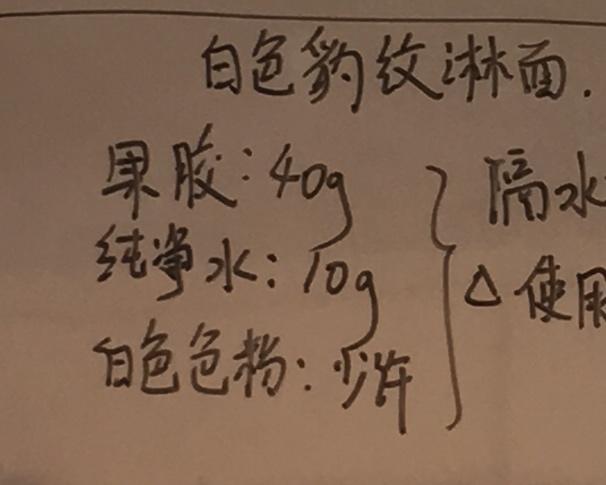 白色豹纹淋面.
果胶：40g
纯净水：10g
白色色粉：少许
隔水
△使用